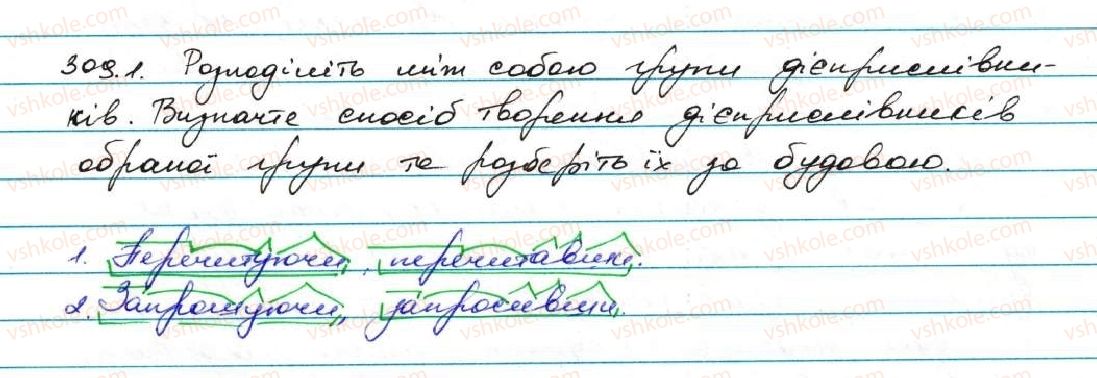 309.1. Розподіліть між собою групи дієприслівни-
ків. Визначте спосіб творення дієприслівників
обраної групи та розберіть їх за будовою.
1. Перечитуючи, перечитавши.
2. Запрошуючи, запросивши.